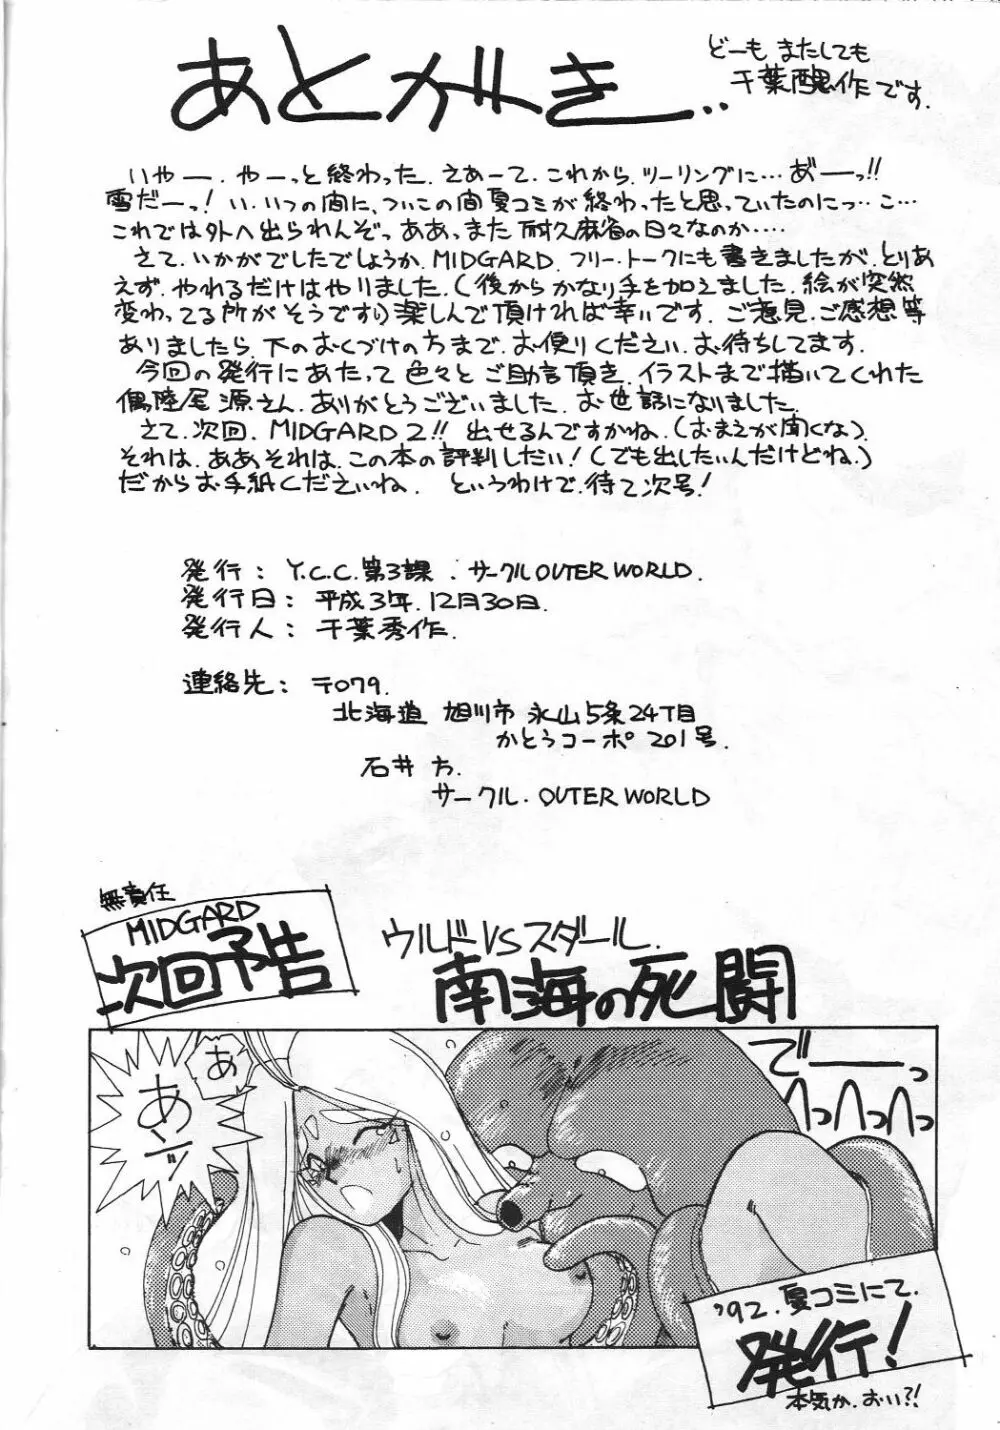 あとがき..
どーも またしても
千葉醜作です.
いやー. やーっと終わった. さあーて. これから. ツーリングに… あ゛ーっ!!
雪だーっ! い. いつの間に, ついこの間夏コミが終わったと思っていたのにっ… こ…
これでは外へ出られんぞっ. ああっまた 耐久麻雀の日々なのか….
さて. いかがでしたでしょうか. MIDGARD. フリー.トークにも書きましたが. とりあ
えず. やれるだけはやりました. (後からかなり手を加えました. 絵が突然
変わってる所がそうです) 楽しんで頂ければ幸いです. ご意見. ご感想等
ありましたら. 下のおくづけのちまで. お便りください. お待ちしてます.
今回の発行にあたって 色々とご助言頂き. イラストまで描いてくれた
偶陸尾 源さん. ありがとうございました. お世話になりました.
さて. 次回. MIDGARD 2!! 出せるんですかね. (おまえが聞くな).
それは. ああそれは. この本の評判しだい! (でも出したいんだけどね.)
だからお手紙くださいね. というわけで. 待て次号!
発行: Y.C.C. 第3課. サークル OUTER WORLD.
発行日: 平成3年. 12月30日.
発行人: 千葉秀作.
連絡先: 〒079.
北海道 旭川市 永山5条24丁目
かとうコーポ 201号.
石井 方.
サークル. OUTER WORLD
無責任
MIDGARD
次回予告
ウルドVSスダール.
南海の死闘
あ
あンッ
でーーっ
へっへっへっ
'92. 夏コミにて.
発行!
本気か. おい?!